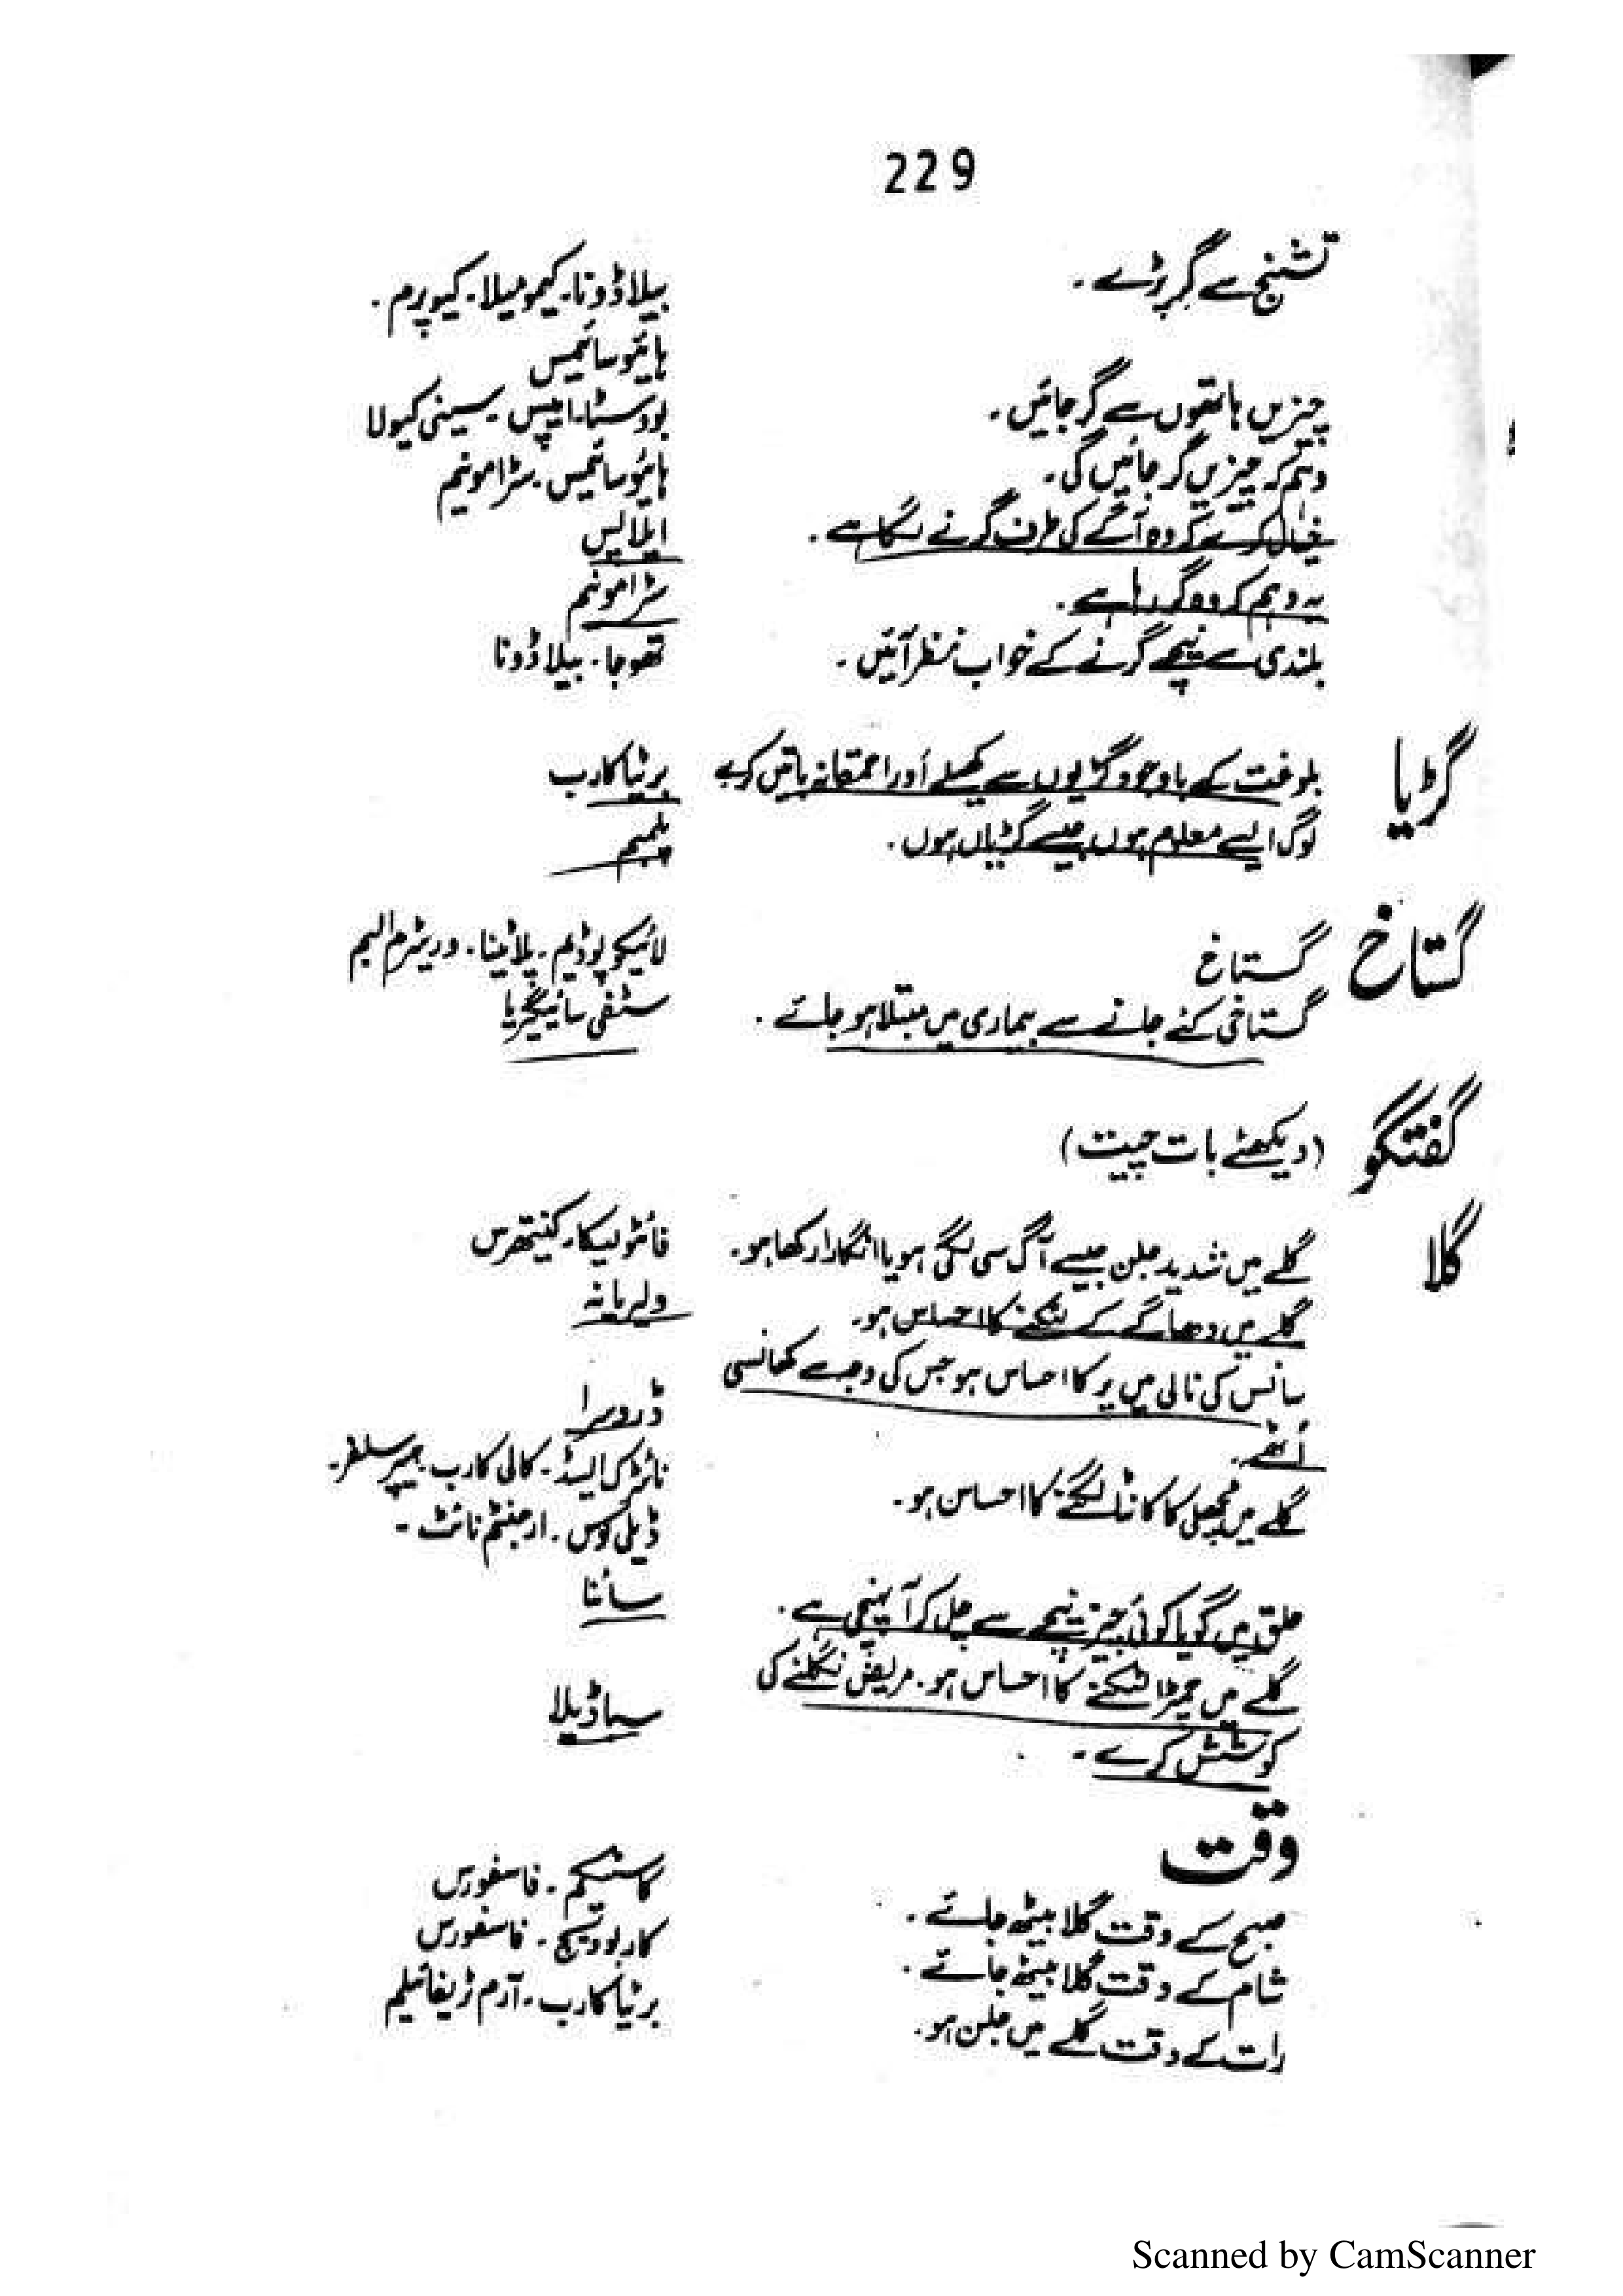 229
تشنج سے گر پڑے۔ بیلاڈونا۔ کیمومیلا۔ کیوپرم۔
ہائیوسائمس
چیزیں ہاتھوں سے گر جائیں۔ بووسٹا۔ ایپس۔ سینی کیولا
وہم کہ چیزیں گر جائیں گی۔ ہائیوسائمس۔ سٹرامونیم
خیال کرے کہ وہ آگے کی طرف گرنے لگا ہے۔ ایلاپس
یہ وہم کہ وہ گر رہا ہے۔ سٹرامونیم
بلندی سے نیچے گرنے کے خواب نظر آئیں۔ تھوجا۔ بیلاڈونا
گڑیا بلوغت کے باوجود گڑیوں سے کھیلے اور احمقانہ باتیں کرے برئیاکارب
لوگ ایسے معلوم ہوں جیسے گڑیاں ہوں۔ پلمبم
گستاخ گستاخ لائیکوپوڈیم۔ پلاٹینا۔ وریٹرم البم
گستاخی کئے جانے سے بیماری میں مبتلا ہو جائے۔ سٹفی سائیگریا
گفتگو (دیکھئے بات چیت)
گلا گلے میں شدید جلن جیسے آگ سی لگی ہو یا انگارا رکھا ہو۔ فائٹولیکا۔ کینتھرس
گلے میں دھاگے کے لٹکنے کا احساس ہو۔ ولیریانہ
سانس کی نالی میں پر کا احساس ہو جس کی وجہ سے کھانسی
اُٹھے۔ ڈروسرا
گلے میں مچھلی کا کانٹا لگنے کا احساس ہو۔ نائٹرک ایسڈ۔ کالی کارب۔ ہیپر سلفر۔
ڈیلی کوس۔ ارجنٹم نائٹ۔
حلق میں گویا کوئی چیز نیچے سے چل کر آ پہنچی ہے۔ سائنا
گلے میں چمڑا لٹکنے کا احساس ہو۔ مریض نگلنے کی
کوشش کرے۔ سباڈیلا
وقت
صبح کے وقت گلا بیٹھ جائے۔ کاسٹیکم۔ فاسفورس
شام کے وقت گلا بیٹھ جائے۔ کاربوویج۔ فاسفورس
رات کے وقت گلے میں جلن ہو۔ برئیاکارب۔ آرم ڈیفائیلیم
Scanned by CamScanner